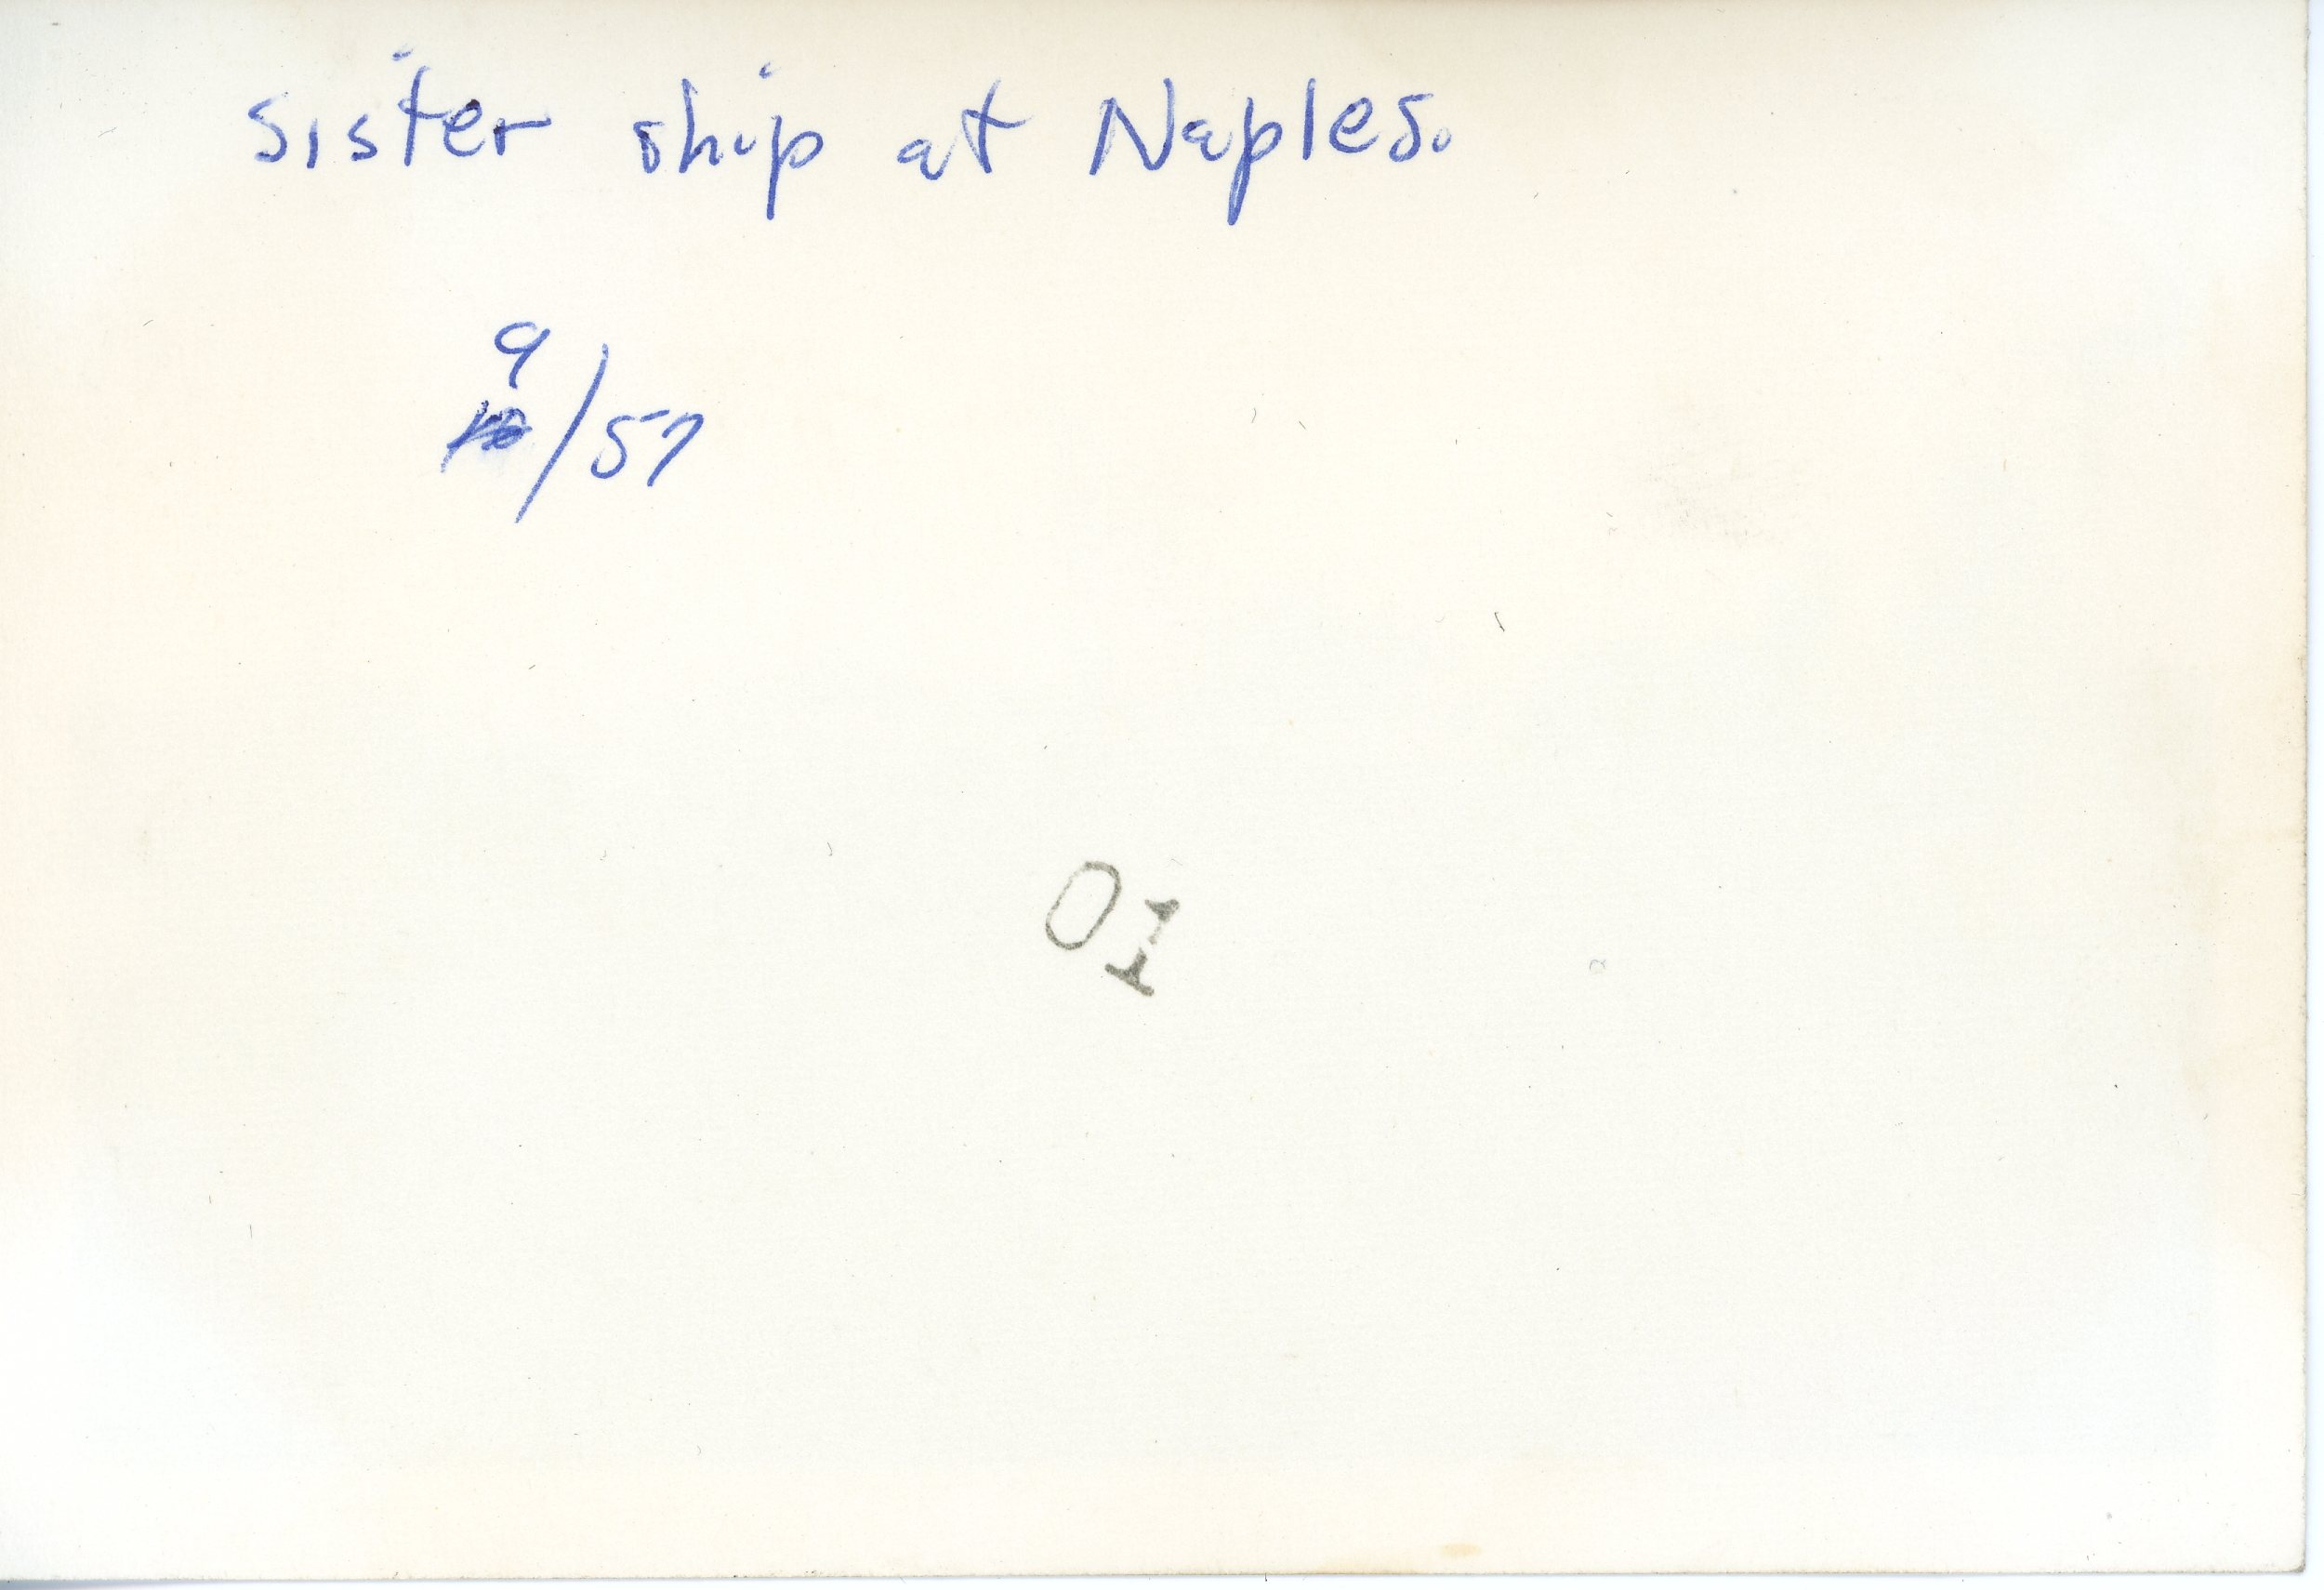 Sister ship at Naples.
9
/57
01